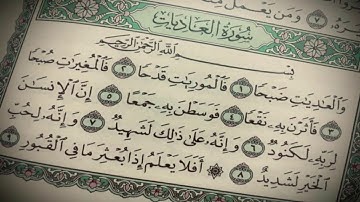 سُورَةُ العَادِيَاتِ
بِسْمِ اللَّهِ الرَّحْمَٰنِ الرَّحِيمِ
وَالْعَٰدِيَٰتِ ضَبْحًا ١ فَالْمُورِيَٰتِ قَدْحًا ٢ فَالْمُغِيرَٰتِ صُبْحًا
٣ فَأَثَرْنَ بِهِۦ نَقْعًا ٤ فَوَسَطْنَ بِهِۦ جَمْعًا ٥ إِنَّ الْإِنسَٰنَ
لِرَبِّهِۦ لَكَنُودٌ ٦ وَإِنَّهُۥ عَلَىٰ ذَٰلِكَ لَشَهِيدٌ ٧ وَإِنَّهُۥ لِحُبِّ
الْخَيْرِ لَشَدِيدٌ ٨ أَفَلَا يَعْلَمُ إِذَا بُعْثِرَ مَا فِي الْقُبُورِ ٩